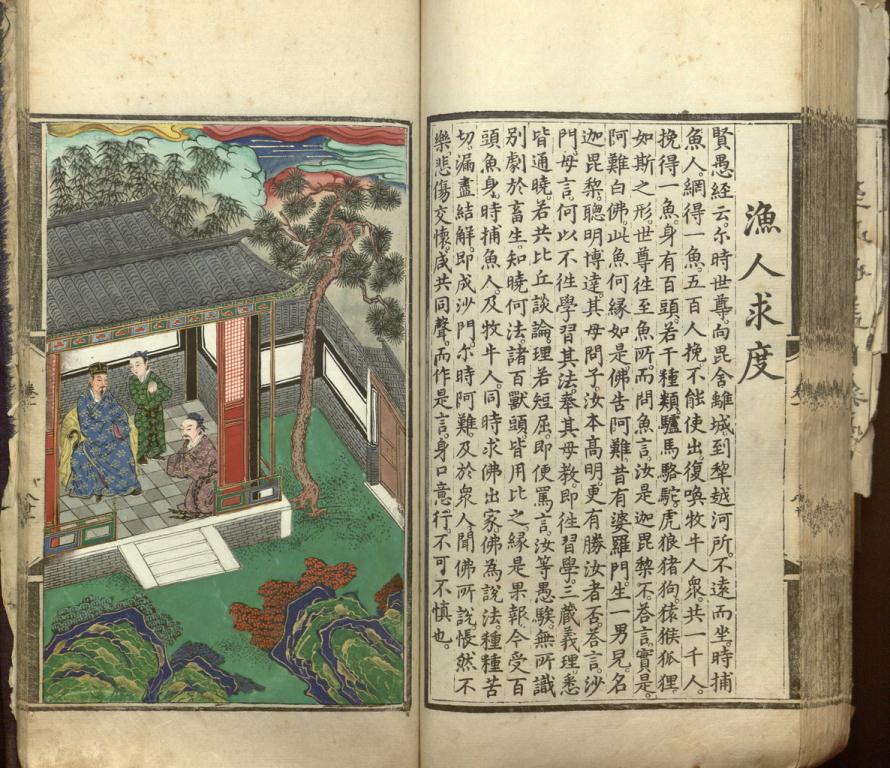 漁人求度
賢愚經云。尒時世尊。向毘舍離城。到犂越河所。不遠而坐。時捕
魚人。網得一魚。五百人挽。不能使出。復喚牧牛人衆。共一千人。
挽得一魚。身有百頭。若干種類。驢馬駱駝。虎狼猪狗。猿猴狐狸。
如斯之形。世尊徃至魚所。而問魚言。汝是迦毘黎不。荅言。實是。
阿難白佛。此魚何緣如是。佛告阿難。昔有婆羅門。生一男兒。名
迦毘黎。聰明博達。其母問子。汝本高明。更有勝汝者否。荅言。沙
門。母言。何以不徃學習其法。奉其母教。即徃習學。三藏義理。悉
皆通曉。若共比丘談論。理若短屈。即便罵言。汝等愚騃無所識
別。劇於畜生。知曉何法。諸百獸頭。皆用比之。緣是果報。今受百
頭魚身。時捕魚人。及牧牛人。同時求佛出家。佛為說法。種種苦
切。漏盡結解。即成沙門。尒時阿難。及於衆人。聞佛所說。悵然不
樂。悲傷交懷。咸共同聲。而作是言。身口意行。不可不慎也。